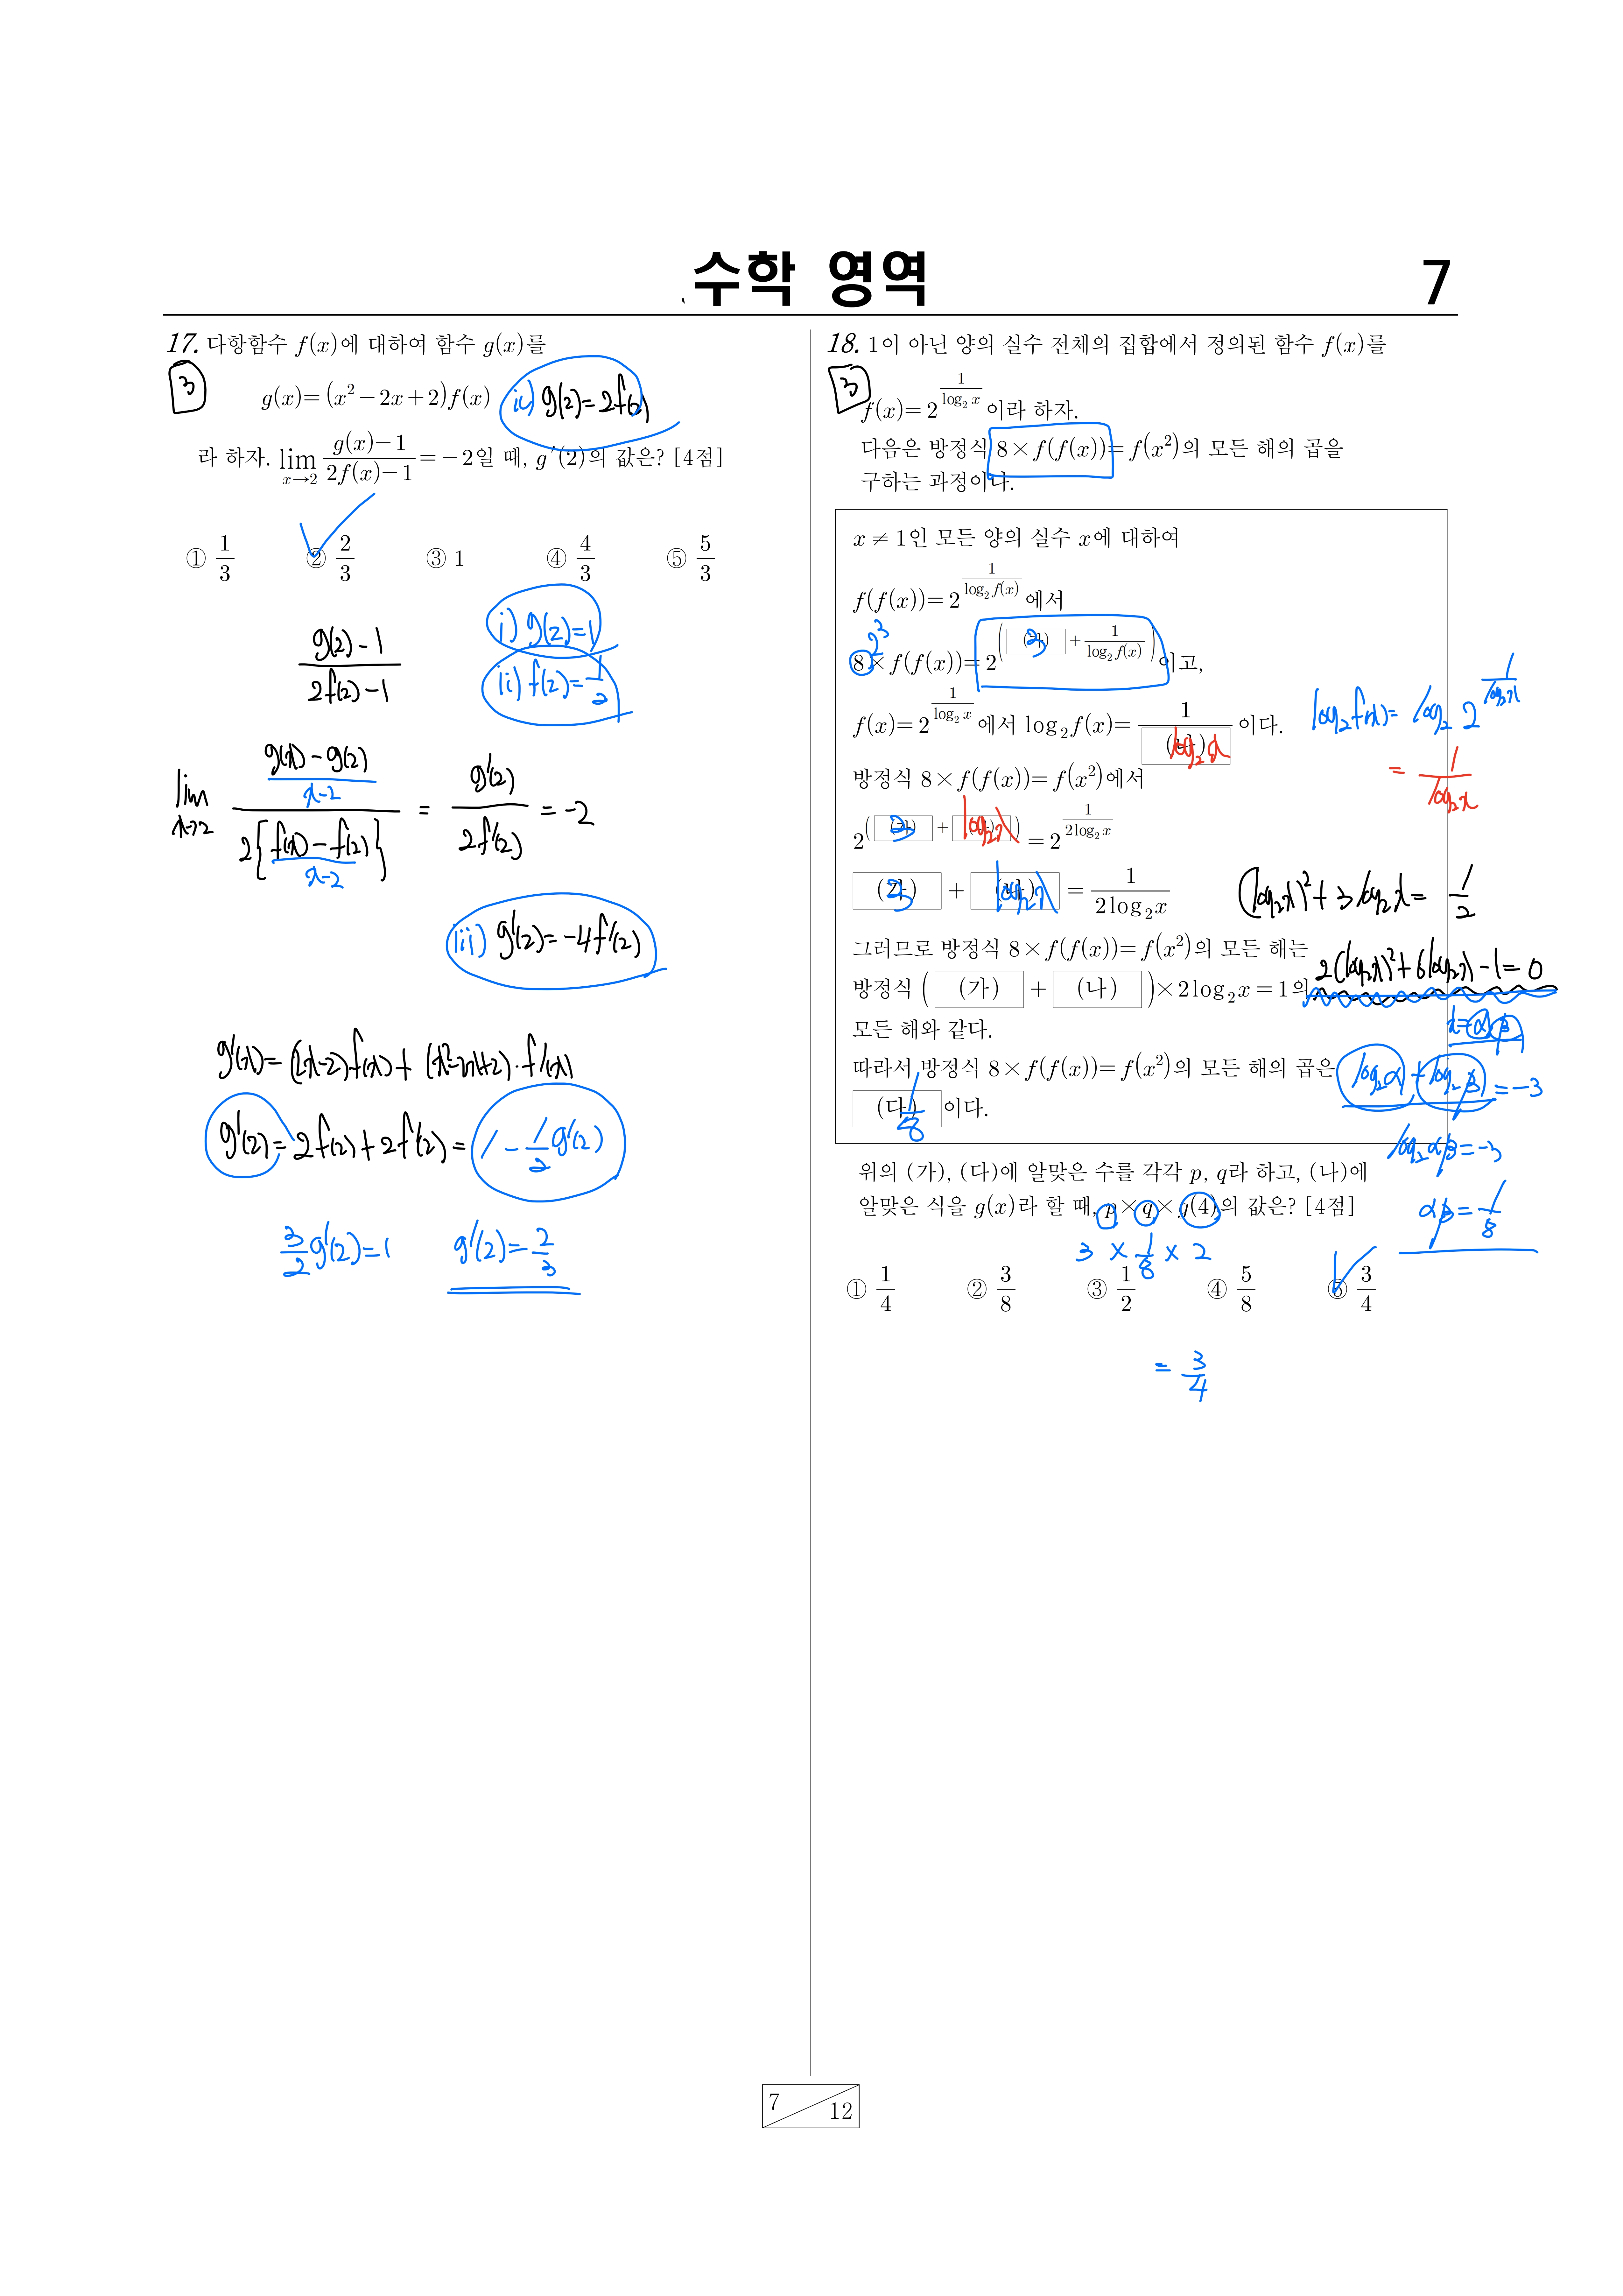 수학 영역
7
17. 다항함수 f(x)에 대하여 함수 g(x)를
3
g(x)=(x²-2x+2)f(x)
ii) g(2)=2f(2)
라 하자. lim_{x→2} (g(x)-1)/(2f(x)-1) = -2일 때, g′(2)의 값은? [4점]
① 1/3 ② 2/3 ③ 1 ④ 4/3 ⑤ 5/3
i) g(2)=1
(g(2)-1)/(2f(2)-1)
ii) f(2)=1/2
lim_{x→2} ((g(x)-g(2))/(x-2))/(2{(f(x)-f(2))/(x-2)}) = g′(2)/(2f′(2)) = -2
iii) g′(2)=-4f′(2)
g′(x)=(2x-2)f(x)+(x²-2x+2)·f′(x)
g′(2)=2f(2)+2f′(2)=1-1/2 g′(2)
3/2 g′(2)=1 g′(2)=2/3
18. 1이 아닌 양의 실수 전체의 집합에서 정의된 함수 f(x)를
3
f(x)=2^(1/log₂x) 이라 하자.
다음은 방정식 8×f(f(x))=f(x²)의 모든 해의 곱을
구하는 과정이다.
x≠1인 모든 양의 실수 x에 대하여
f(f(x))=2^(1/log₂f(x)) 에서
2³
8×f(f(x))=2^((가) 3 + 1/log₂f(x)) 이고,
f(x)=2^(1/log₂x) 에서 log₂f(x)=1/(나) log₂x 이다.
log₂f(x)=log₂2^(1/log₂x)
=1/log₂x
방정식 8×f(f(x))=f(x²)에서
2^((가) 3 + (나) log₂x) = 2^(1/(2log₂x))
(가) 3 + (나) log₂x = 1/(2log₂x)
(log₂x)²+3log₂x=1/2
그러므로 방정식 8×f(f(x))=f(x²)의 모든 해는
2(log₂x)²+6log₂x-1=0
방정식 ( (가) + (나) )×2log₂x=1의
모든 해와 같다.
x=α, β
따라서 방정식 8×f(f(x))=f(x²)의 모든 해의 곱은
log₂α+log₂β=-3
(다) 1/8 이다.
log₂αβ=-3
위의 (가), (다)에 알맞은 수를 각각 p, q라 하고, (나)에
알맞은 식을 g(x)라 할 때, p×q×g(4)의 값은? [4점]
αβ=1/8
3 × 1/8 × 2
① 1/4 ② 3/8 ③ 1/2 ④ 5/8 ⑤ 3/4
=3/4
7
12